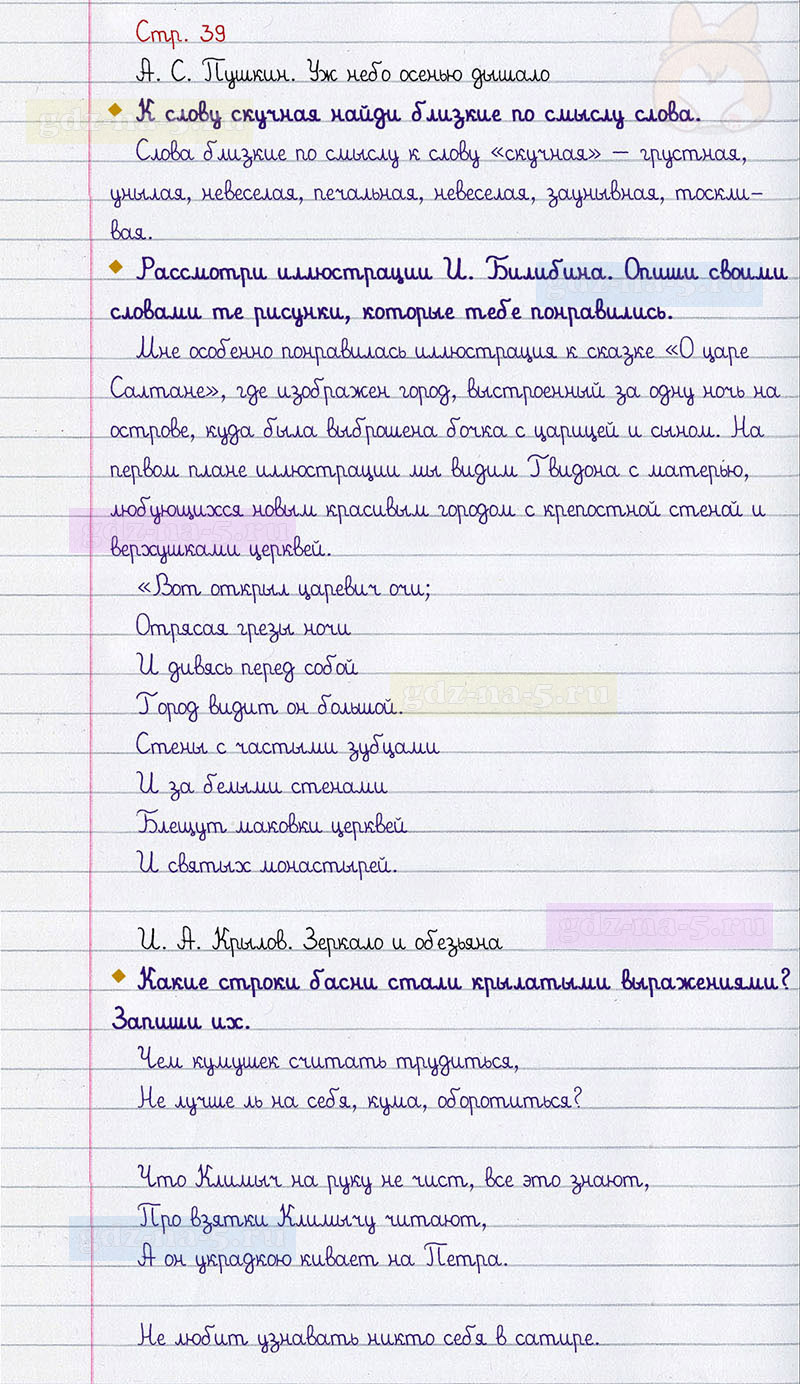 Стр. 39
А. С. Пушкин. Уж небо осенью дышало
gdz-na-5.ru
К слову скучная найди близкие по смыслу слова.
Слова близкие по смыслу к слову «скучная» – грустная,
унылая, невеселая, печальная, невеселая, заунывная, тоскли-
вая.
Рассмотри иллюстрации И. Билибина. Опиши своими
gdz-na-5.ru
словами те рисунки, которые тебе понравились.
Мне особенно понравилась иллюстрация к сказке «О царе
Салтане», где изображен город, выстроенный за одну ночь на
острове, куда была выброшена бочка с царицей и сыном. На
первом плане иллюстрации мы видим Гвидона с матерью,
любующихся новым красивым городом с крепостной стеной и
gdz-na-5.ru
верхушками церквей.
«Вот открыл царевич очи;
Отрясая грезы ночи
И дивясь перед собой
gdz-na-5.ru
Город видит он большой.
Стены с частыми зубцами
И за белыми стенами
Блещут маковки церквей
И святых монастырей.
gdz-na-5.ru
И. А. Крылов. Зеркало и обезьяна
Какие строки басни стали крылатыми выражениями?
Запиши их.
Чем кумушек считать трудиться,
Не лучше ль на себя, кума, оборотиться?
Что Климыч на руку не чист, все это знают,
Про взятки Климычу читают,
gdz-na-5.ru
А он украдкою кивает на Петра.
Не любит узнавать никто себя в сатире.